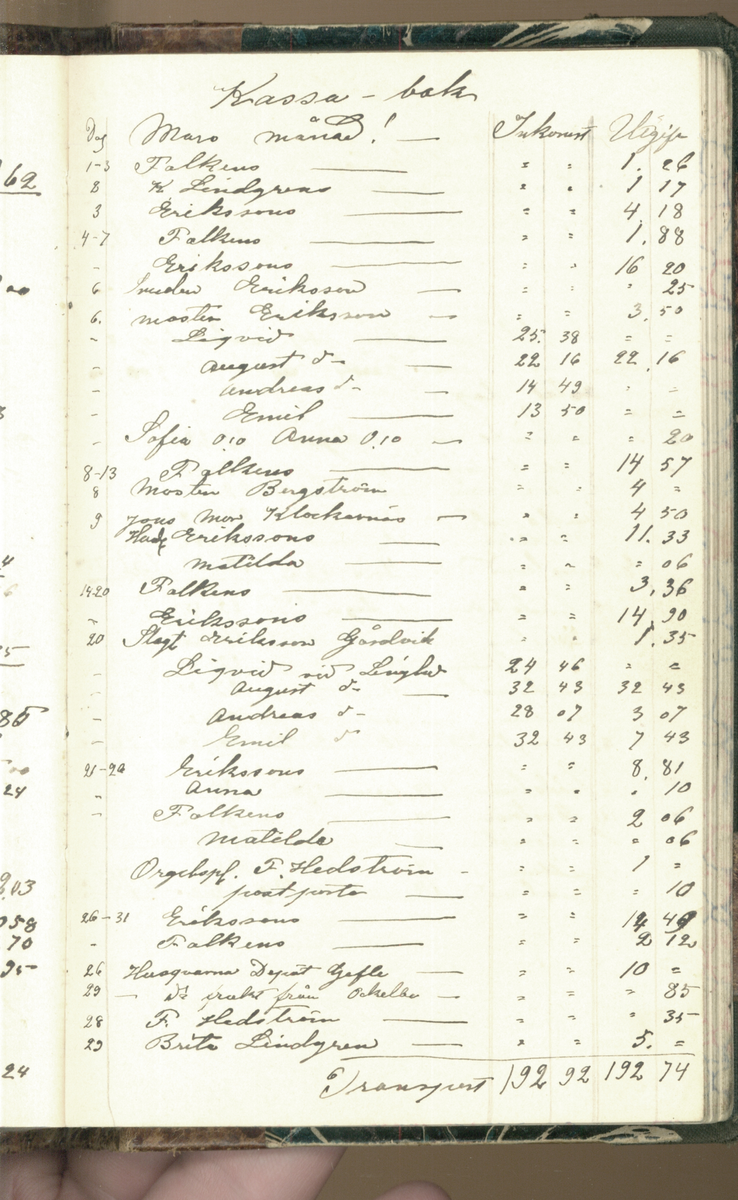 Kassa-bok
Dag Mars månad! — Inkomst Utgift
1-3 Falkens — " " 1. 26
8 K Lindgrens — " " 1 17
3 Erikssons — " " 4. 18
4-7 Falkens — " " 1. 88
- Erikssons — " " 16 20
6 Eriksson — " " " 25
6. moster Eriksson — " " 3. 50
- Liqvid — 25. 38 " "
- August d- — 22 16 22. 16
- Andreas d- — 14 49 " "
- Emil — 13 50 " "
- Sofia 0,10 Anna 0,10 — " " " 20
8-13 Falkens — " " 14 57
8 Moster Bergström " " 4 "
9 Jons mor Klockarnäs — " " 4 50
Erikssons — " " 11. 33
matilda — " " " 06
14-20 Falkens — " " 3, 36
" Erikssons — " " 14 90
20 Slagt Eriksson Gårdvik " " 1. 35
- Liqvid vid 24 46 " "
- August d- — 32 43 32 43
- Andreas d- 28 07 3 07
- Emil d- 32 43 7 43
21-26 Erikssons — " " 8. 81
- Anna — " " " 10
- Falkens — " " 2 06
matilda — " " " 06
Orgelspl. F. Hedström - " " 1 "
postporto — " " " 10
26-31 Erikssons — " " 14 49
- Falkens — " " 2 12
26 Husqvarna Depot Gefle — " " 10 "
29 - d:o frakt från Ockelbo — " " " 85
28 F. Hedström — " " " 35
29 Brita Lindgren — " " 5. "
Transport 192 92 192 74
62
00
3
4
6
5
85
00
24
2,03
058
70
95
24